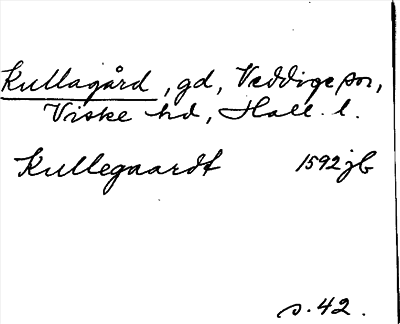 Kullagård, gd, Veddige sn,
Viske hd, Hall. l.
Kullegaardt 1592 jb
s. 42.